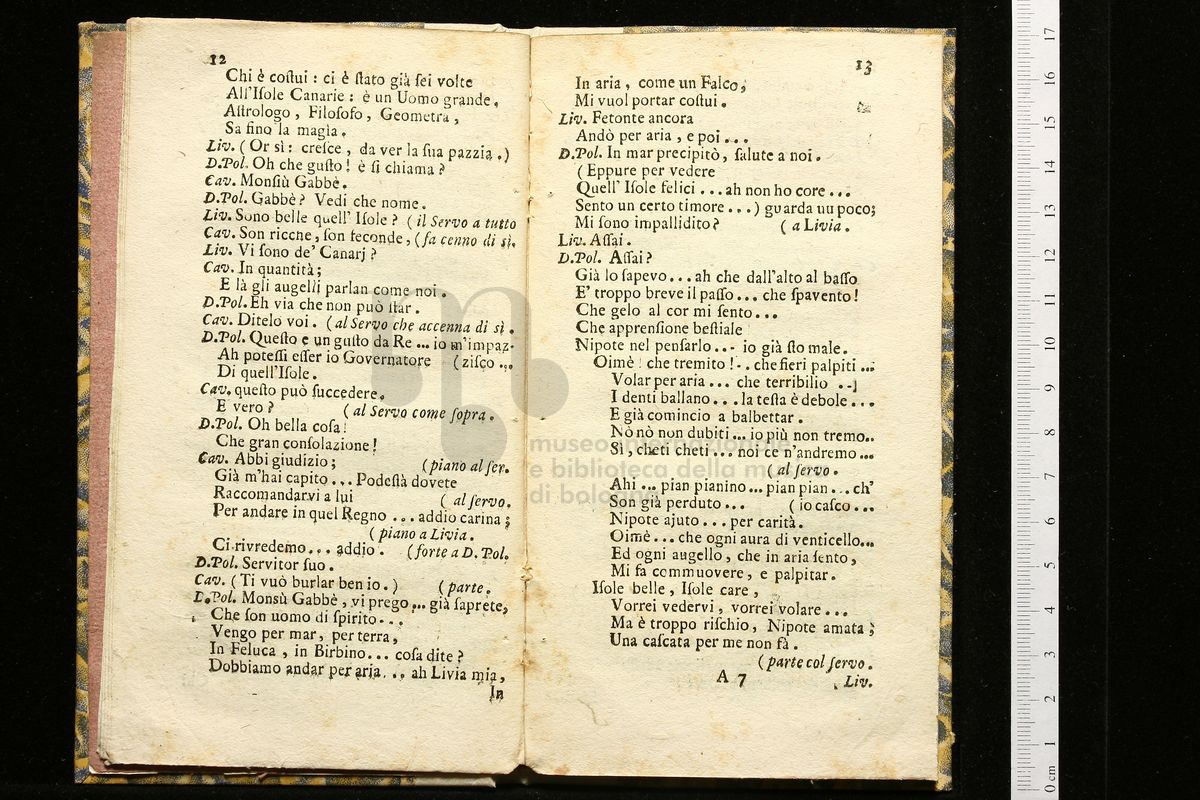 12
Chi è coſtui : ci è ſtato già ſei volte
All'Iſole Canarie : è un Uomo grande,
Aſtrologo , Filoſofo , Geometra ,
Sa fino la magìa .
Liv. ( Or sì : creſce , da ver la ſua pazzia .)
D.Pol. Oh che guſto ! è ſi chiama ?
Cav. Monſiù Gabbè .
D.Pol. Gabbè ? Vedi che nome .
Liv. Sono belle quell' Iſole ? ( il Servo a tutto
Cav. Son ricche , ſon feconde , ( fa cenno di sì.
Liv. Vi ſono de' Canarj ?
Cav. In quantità ;
E là gli augelli parlan come noi .
D.Pol. Eh via che non può ſtar .
Cav. Ditelo voi . ( al Servo che accenna di sì .
D.Pol. Queſto e un guſto da Re ... io m'impaz-
Ah poteſſi eſſer io Governatore ( ziſco ...
Di quell'Iſole .
Cav. queſto può ſuccedere .
E vero ? ( al Servo come ſopra .
D.Pol. Oh bella coſa !
Che gran conſolazione !
Cav. Abbi giudizio ; (piano al ſer.
Già m'hai capito ... Podeſtà dovete
Raccomandarvi a lui ( al ſervo .
Per andare in quel Regno ... addio carina ;
( piano a Livia .
Ci rivredemo ... addio . ( forte a D. Pol.
D.Pol. Servitor ſuo .
Cav. ( Ti vuò burlar ben io . ) ( parte .
D.Pol. Monsù Gabbè , vi prego ... già ſaprete,
Che ſon uomo di ſpirito ...
Vengo per mar , per terra ,
In Feluca , in Birbino ... coſa dite ?
Dobbiamo andar per aria ... ah Livia mia ,
In
13
In aria , come un Falco ,
Mi vuol portar coſtui .
Liv. Fetonte ancora
Andò per aria , e poi ...
D.Pol. In mar precipitò , ſalute a noi .
( Eppure per vedere
Quell' Iſole felici ... ah non ho core ...
Sento un certo timore ... ) guarda uu poco;
Mi ſono impallidito ? ( a Livia .
Liv. Aſſai .
D.Pol. Aſſai ?
Già lo ſapevo ... ah che dall'alto al baſſo
E' troppo breve il paſſo ... che ſpavento !
Che gelo al cor mi ſento ...
Che apprenſione beſtiale
Nipote nel penſarlo ... io già ſto male .
Oimè ! che tremito ! .. che fieri palpiti ...
Volar per aria ... che terribilio ..
I denti ballano ... la teſta è debole ...
E già comincio a balbettar .
Nò nò non dubiti ... io più non tremo ..
Sì , cheti cheti ... noi ce n'andremo ...
( al ſervo .
Ahi ... pian pianino ... pian pian ... ch'
Son già perduto ... ( io caſco ...
Nipote ajuto ... per carità .
Oimè ... che ogni aura di venticello ...
Ed ogni augello , che in aria ſento ,
Mi fa commuovere , e palpitar .
Iſole belle , Iſole care ,
Vorrei vedervi , vorrei volare ...
Ma è troppo riſchio , Nipote amata ;
Una caſcata per me non fà .
( parte col ſervo .
A 7 Liv.
museo internazionale
e biblioteca della m
di bologna
0 cm 1 2 3 4 5 6 7 8 9 10 11 12 13 14 15 16 17